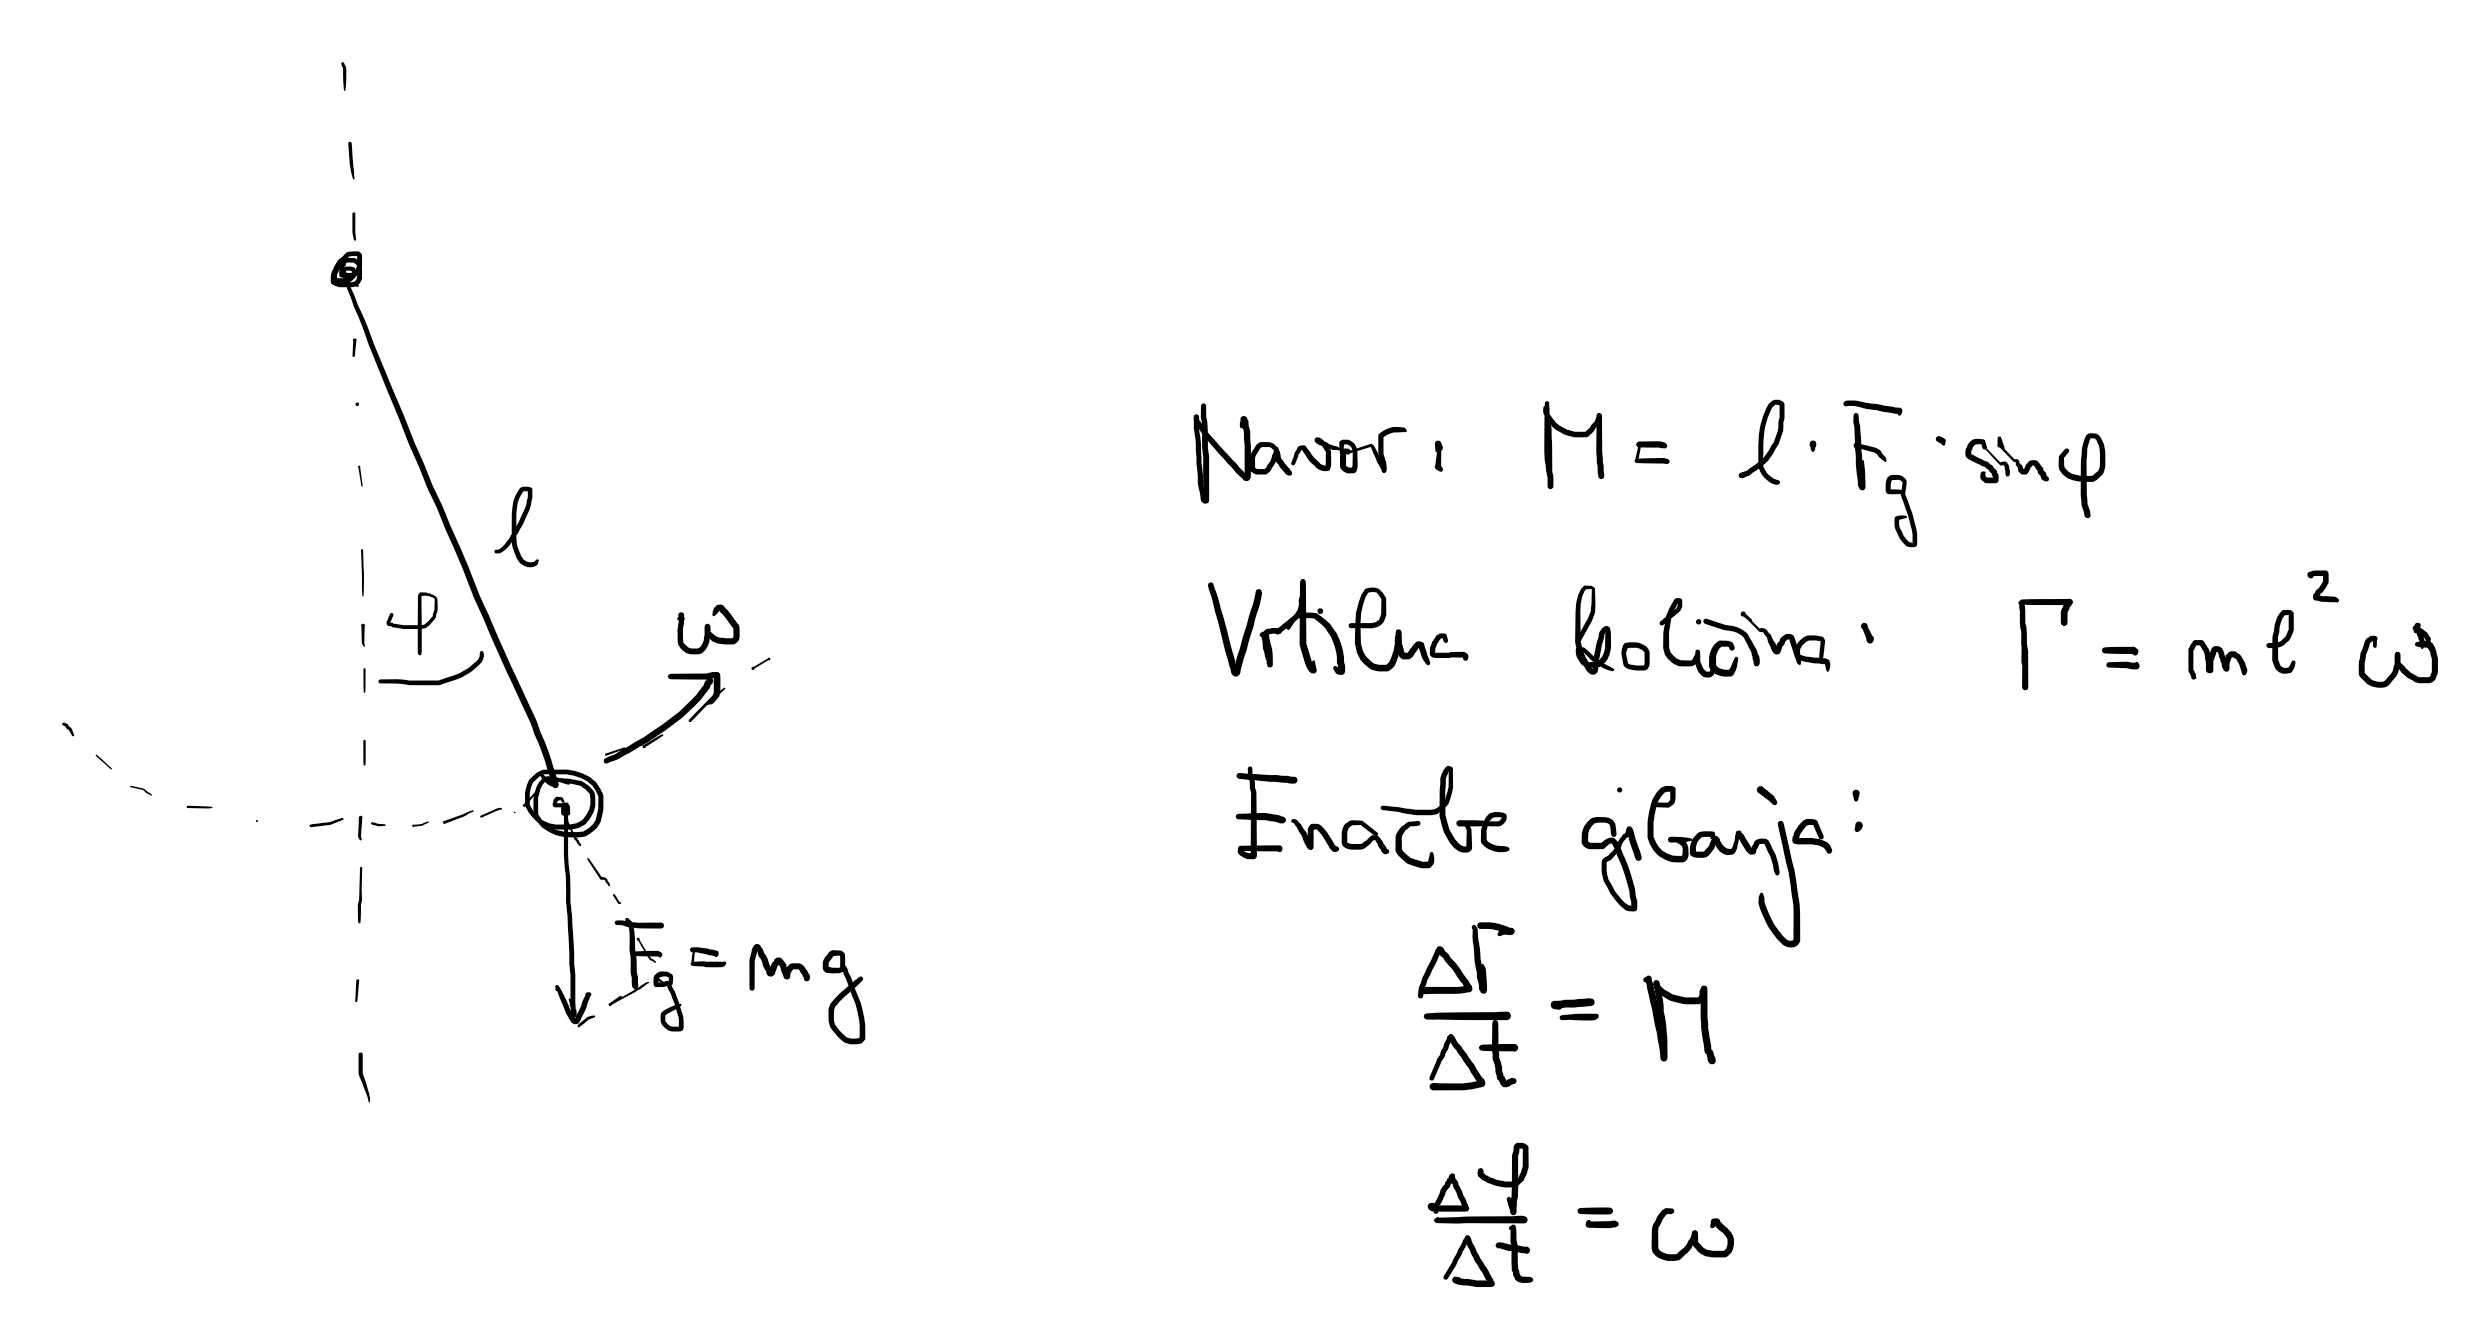 l
φ
ω
F_g = mg
Navor: M = l · F_g · sin φ
Vrtilna količina: Γ = ml² ω
Enačbe gibanja:
ΔΓ/Δt = M
Δφ/Δt = ω